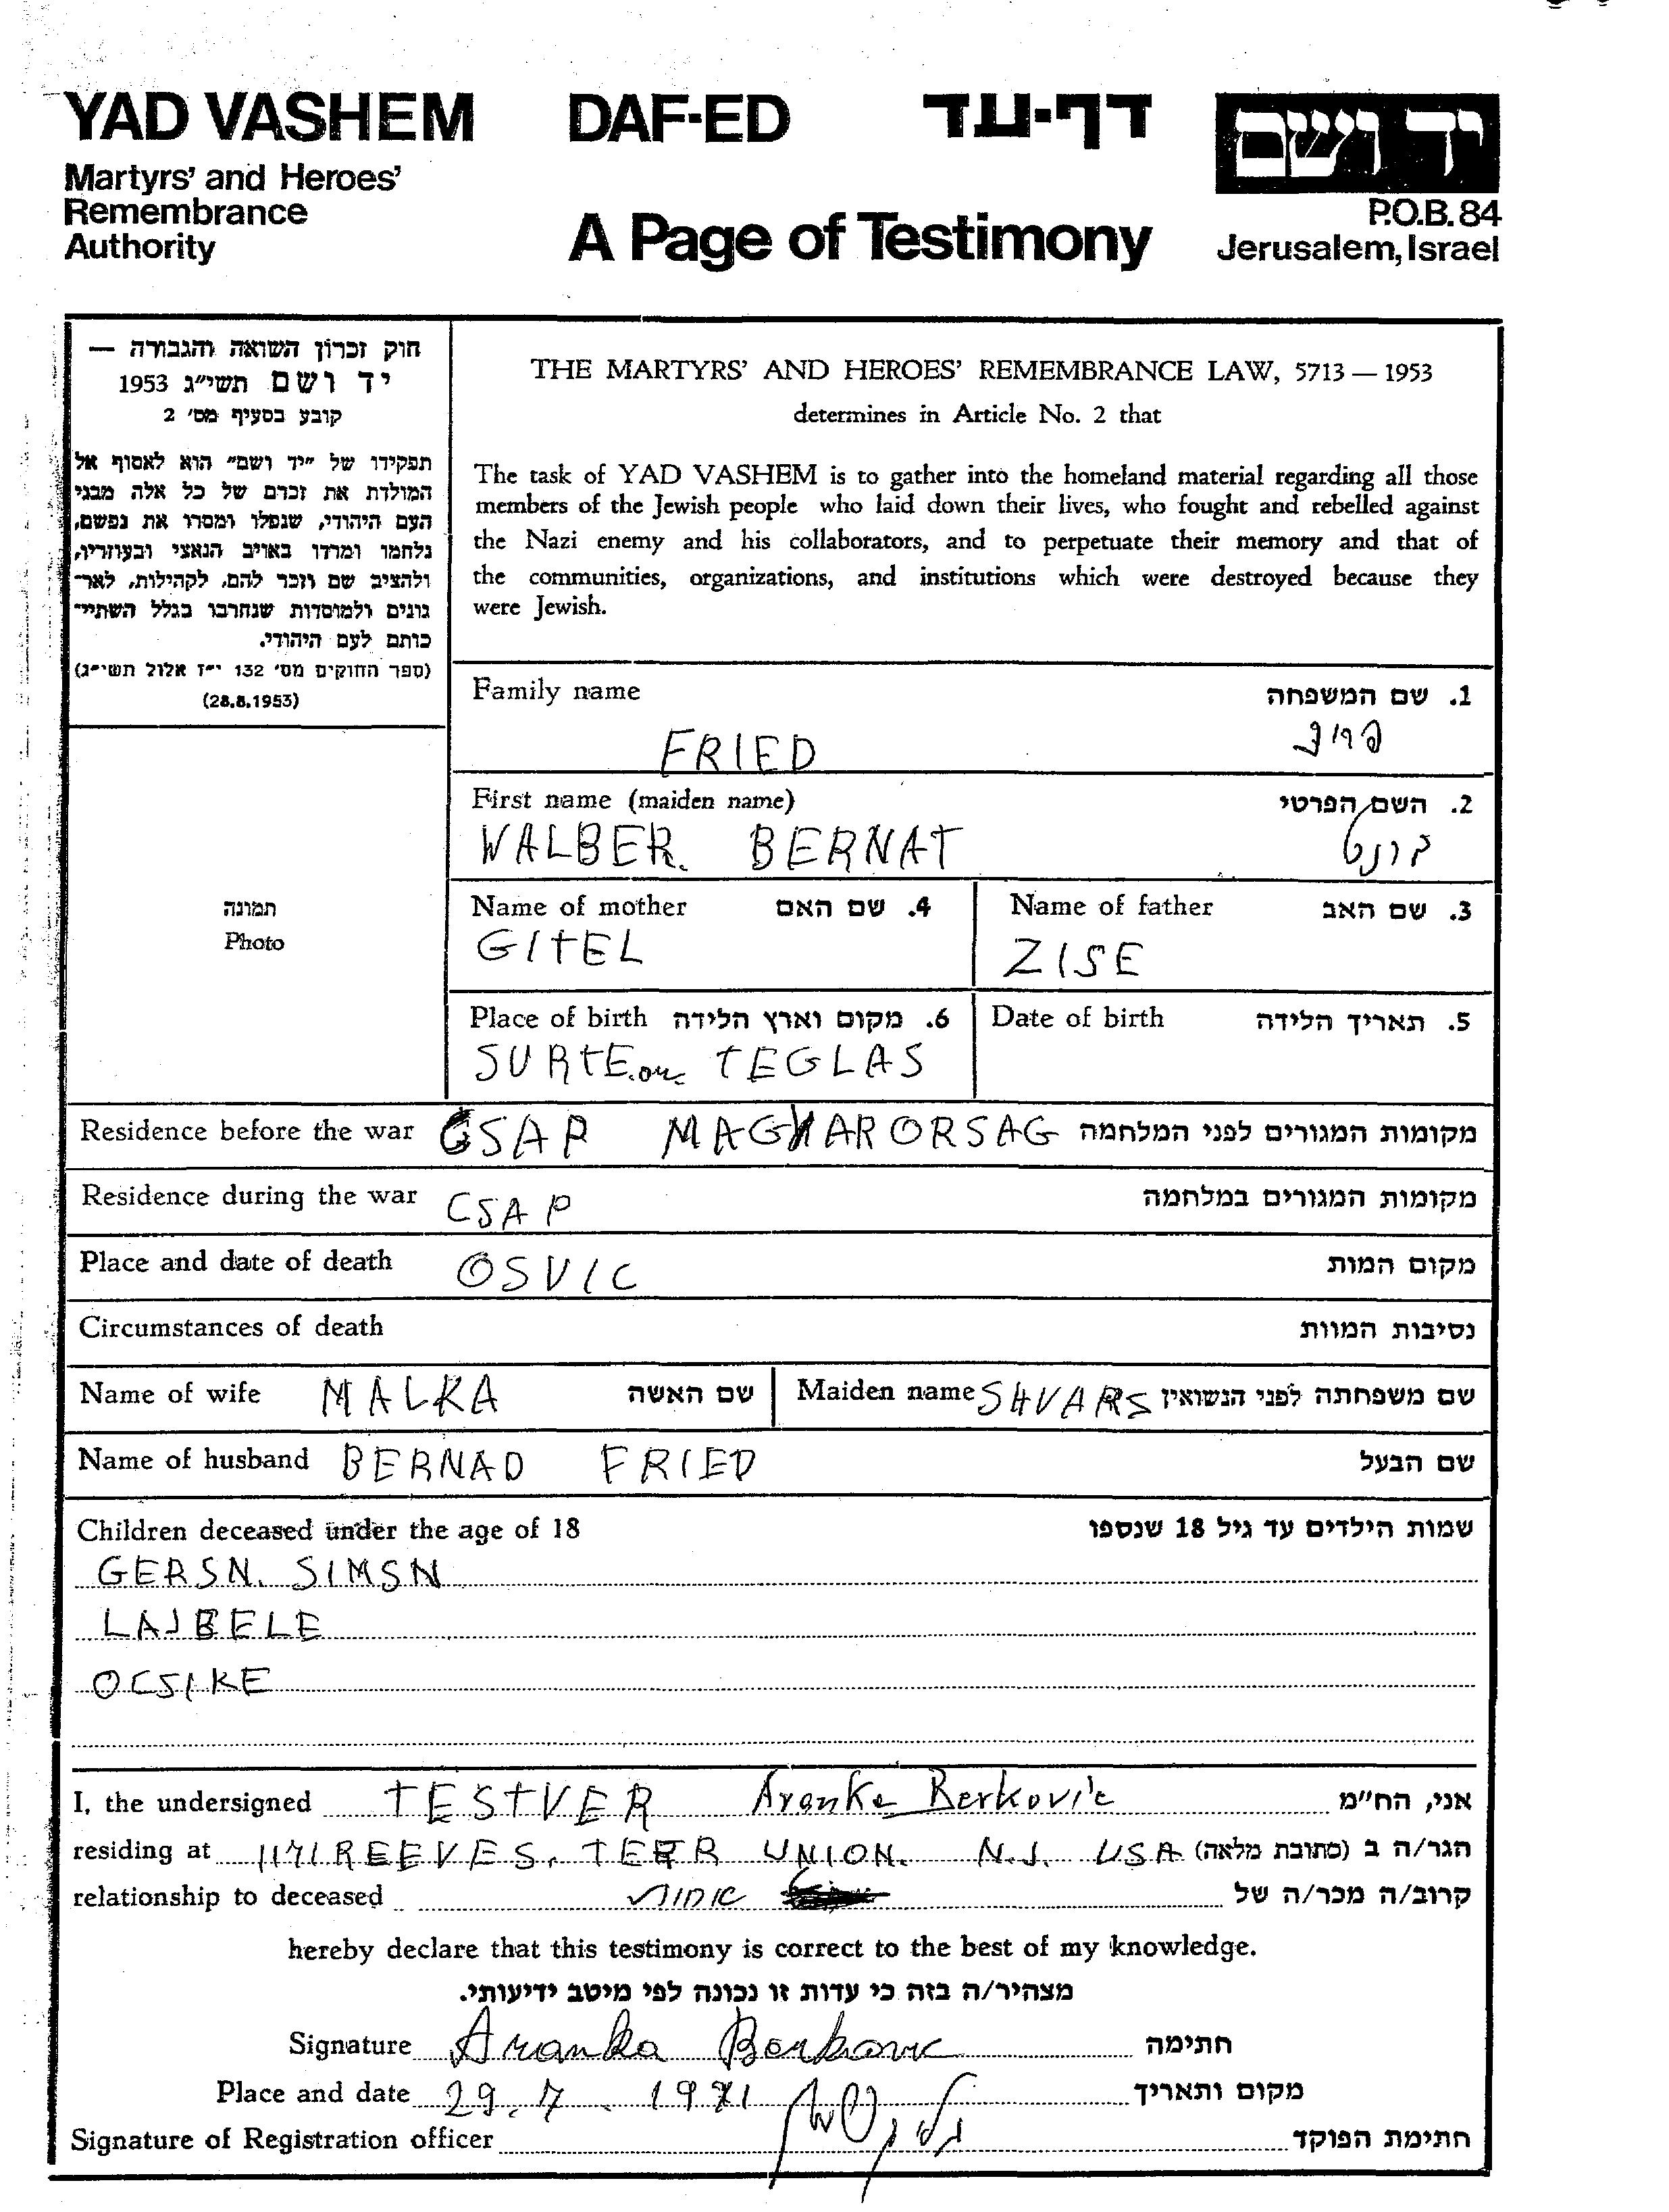 YAD VASHEM DAF-ED דף-עד יד ושם
Martyrs' and Heroes'
Remembrance
Authority
A Page of Testimony
P.O.B. 84
Jerusalem, Israel
חוק זכרון השואה והגבורה —
יד ושם תשי"ג 1953
קובע בסעיף מס' 2
תפקידו של "יד ושם" הוא לאסוף אל
המולדת את זכרם של כל אלה מבני
העם היהודי, שנפלו ומסרו את נפשם,
נלחמו ומרדו באויב הנאצי ובעוזריו,
ולהציב שם וזכר להם, לקהילות, לאר-
גונים ולמוסדות שנחרבו בגלל השתיי-
כותם לעם היהודי.
(ספר החוקים מס' 132 י"ז אלול תשי"ג)
(28.8.1953)
THE MARTYRS' AND HEROES' REMEMBRANCE LAW, 5713 — 1953
determines in Article No. 2 that
The task of YAD VASHEM is to gather into the homeland material regarding all those
members of the Jewish people who laid down their lives, who fought and rebelled against
the Nazi enemy and his collaborators, and to perpetuate their memory and that of
the communities, organizations, and institutions which were destroyed because they
were Jewish.
תמונה
Photo
Family name 1. שם המשפחה
FRIED פריד
First name (maiden name) 2. השם הפרטי
WALBER. BERNAT ברנט
Name of mother 4. שם האם Name of father 3. שם האב
GITEL ZISE
Place of birth 6. מקום וארץ הלידה Date of birth 5. תאריך הלידה
SURTE. or TEGLAS
Residence before the war CSAP MAGYARORSAG מקומות המגורים לפני המלחמה
Residence during the war CSAP מקומות המגורים במלחמה
Place and date of death OSVIC מקום המות
Circumstances of death נסיבות המוות
Name of wife MALKA שם האשה Maiden name SHVARS שם משפחתה לפני הנשואין
Name of husband BERNAD FRIED שם הבעל
Children deceased under the age of 18 שמות הילדים עד גיל 18 שנספו
GERSN. SIMSN
LAJBELE
OCSIKE
I, the undersigned TESTVER Aranka Berkovic אני, הח"מ
residing at 1171 REEVES. TERR UNION. N.J. USA הגר/ה ב (כתובת מלאה)
relationship to deceased אחות קרוב/ה מכר/ה של
hereby declare that this testimony is correct to the best of my knowledge.
מצהיר/ה בזה כי עדות זו נכונה לפי מיטב ידיעותי.
Signature Aranka Berkovic חתימה
Place and date 29.7.1971 מקום ותאריך
Signature of Registration officer חתימת הפוקד